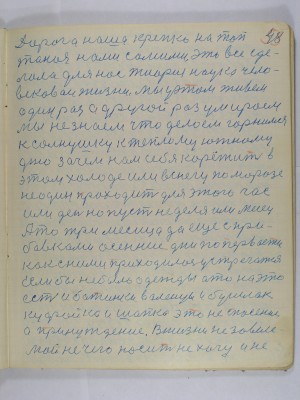 98
Дорога наша крепко на топ
таная нами самими, это все сде-
лала для нас теория науко чело-
вековой жизни, мы в этом живем
один раз а другой раз умираем
мы не знаем что делаем горнимся
к солнушку к теплому южному
дню зачем нам себя корежить в
этом холоде или в снегу по морозе
не один проходит для этого час
или ден но пуст неделя или месец
А то три месяца да еще с при-
бавками осенние дни по первости
как с ними приходилос устречатся
если бы не было одежды а то на это
ест и ботинка валенци и бушлак
кидрайка и шапка это не спасение
а принуждение. В жизни не завал
мой не чего носит не хочу и не